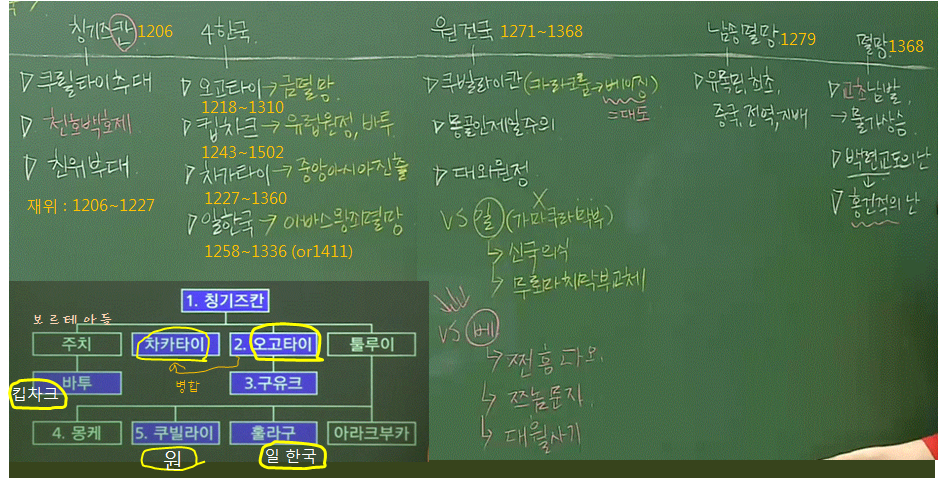 칭기즈칸 1206
▷ 쿠릴타이 추대
▷ 천호백호제.
▷ 친위부대
재위 : 1206~1227
4한국.
▷ 오고타이 → 금멸망.
1218~1310
▷ 킵차크 → 유럽원정, 바투
1243~1502
▷ 차가타이 → 중앙아시아 진출
1227~1360
▷ 일한국 → 아바스왕조멸망
1258~1336 (or1411)
원 건국 1271~1368
▷ 쿠빌라이칸 (카라코룸→베이징)
=대도
▷ 몽골인제일주의
▷ 대외원정
X
VS 일 (가마쿠라막부)
↳ 신국의식
↳ 무로마치막부교체
VS 베
↳ 쩐흥다오.
↳ 쯔놈문자.
↳ 대월사기
남송멸망. 1279
▷ 유목민, 최초,
중국, 전역, 지배
멸망. 1368
▷ 교초남발,
→ 물가상승.
▷ 백련교도의 난
▷ 홍건적의 난
1. 칭기즈칸
보르테 아들
주치 차카타이 2. 오고타이 툴루이
병합
바투 3.구유크
킵차크
4. 몽케 5. 쿠빌라이 훌라구 아라크부카
원 일 한국